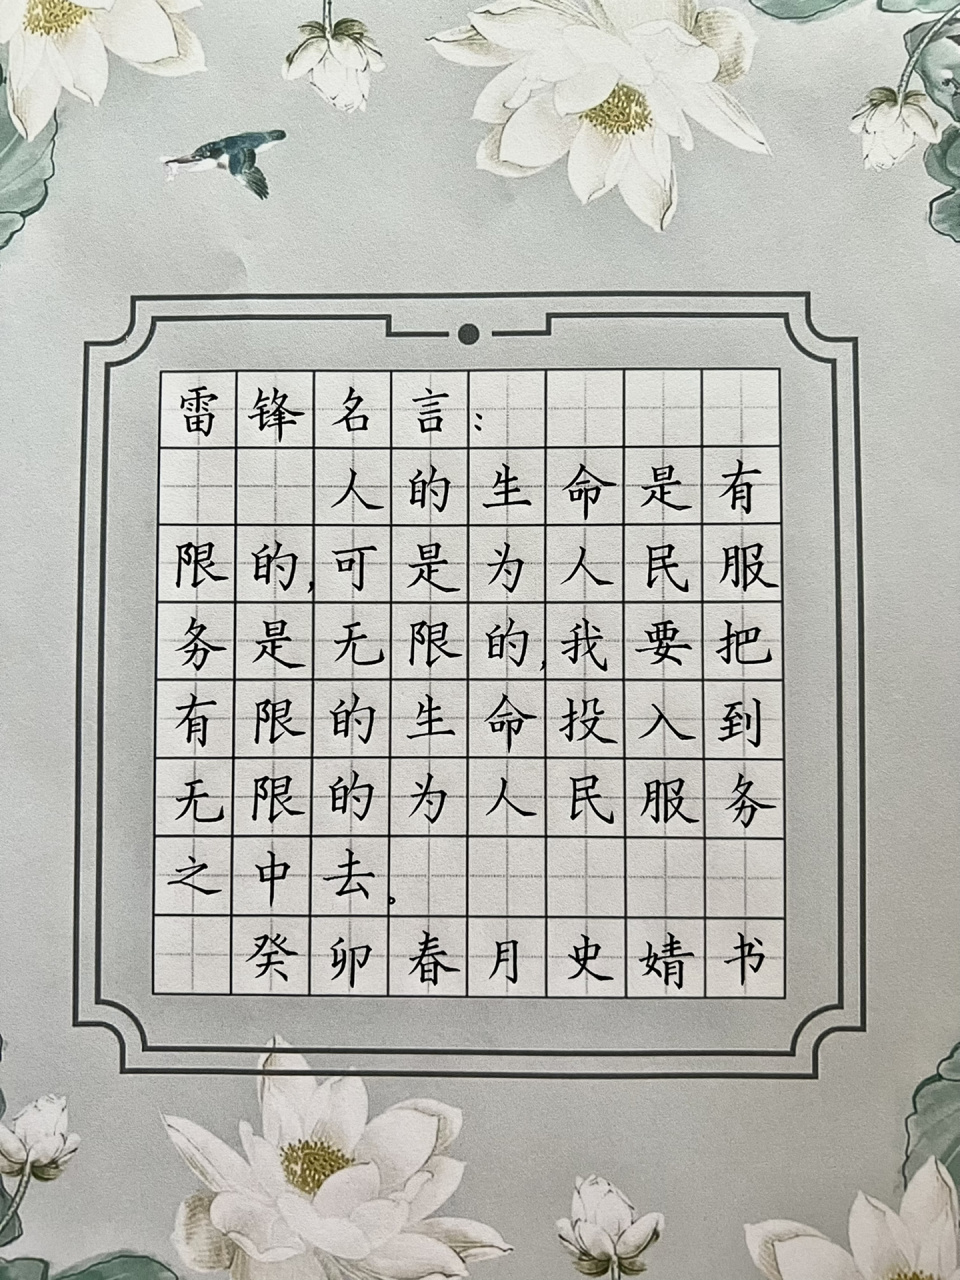 雷锋名言：
人的生命是有
限的,可是为人民服
务是无限的,我要把
有限的生命投入到
无限的为人民服务
之中去。
癸卯春月史婧书